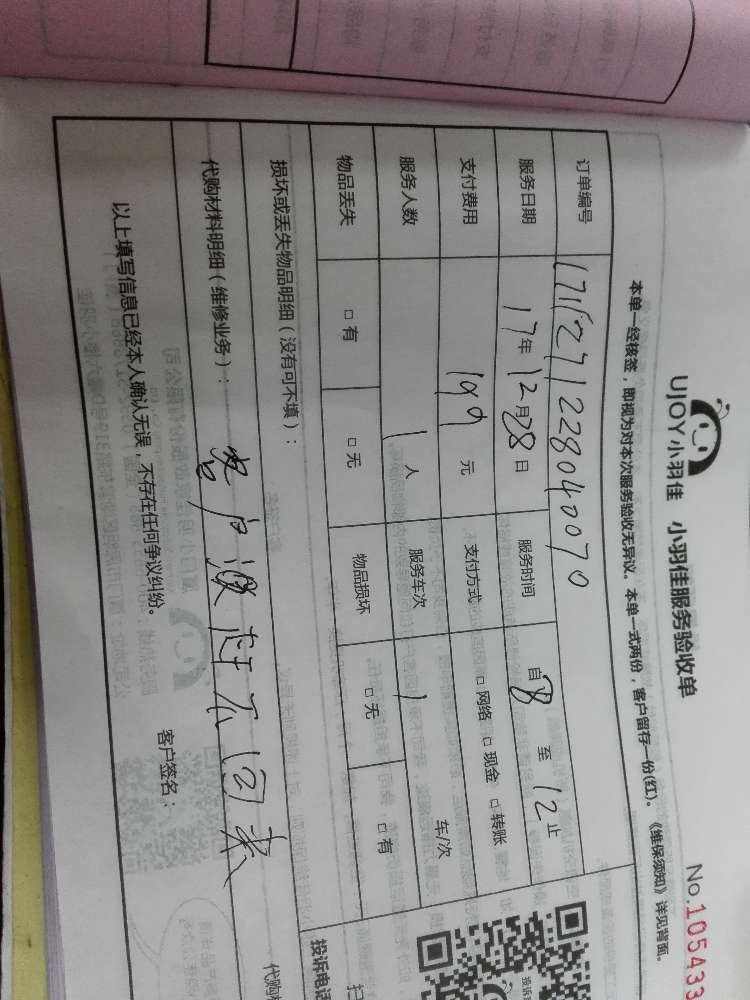 UJOY小羽佳 小羽佳服务验收单
No.105433
本单一经核签，即视为对本次服务验收无异议。本单一式两份，客户留存一份(红)。《维保须知》详见背面。
订单编号 1711271228040070
服务日期 17年12月28日 服务时间 自8至12止
支付费用 199元 支付方式 □网络 □现金 □转账
服务人数 1人 服务车次 1 车/次
物品丢失 □有 □无 物品损坏 □无 □有
损坏或丢失物品明细（没有可不填）：
投诉电话
代购材料明细（维修业务）：
客户没赶不回来
以上填写信息已经本人确认无误，不存在任何争议纠纷。
客户签名：